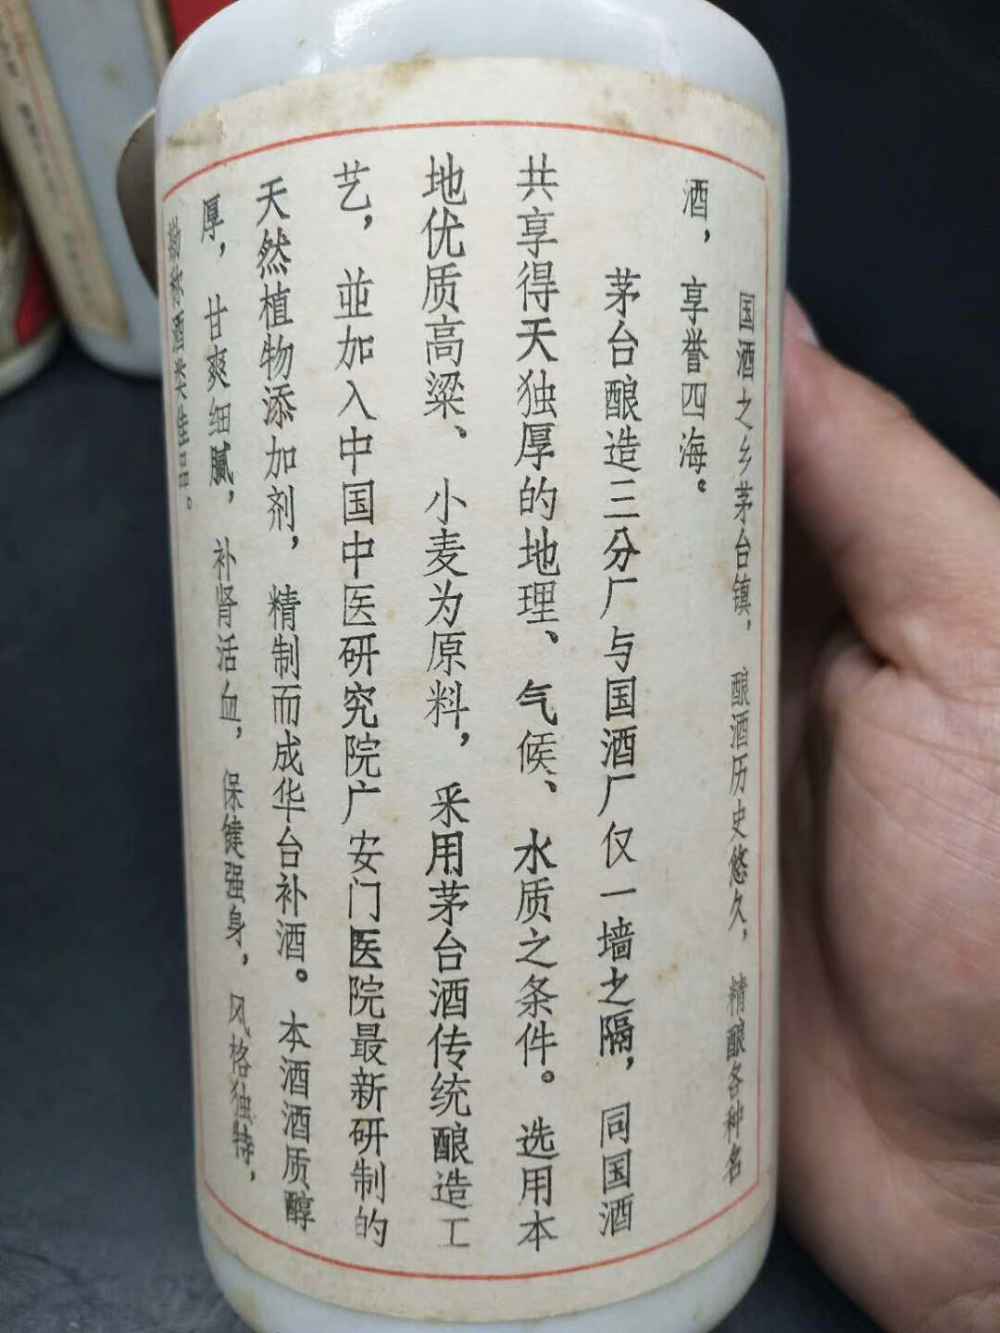 国酒之乡茅台镇，酿酒历史悠久，精酿各种名
酒，享誉四海。
茅台酿造三分厂与国酒厂仅一墙之隔，同国酒
共享得天独厚的地理、气候、水质之条件。选用本
地优质高粱、小麦为原料，采用茅台酒传统酿造工
艺，並加入中国中医研究院广安门医院最新研制的
天然植物添加剂，精制而成华台补酒。本酒酒质醇
厚，甘爽细腻，补肾活血，保健强身，风格独特，
堪称酒类佳品。